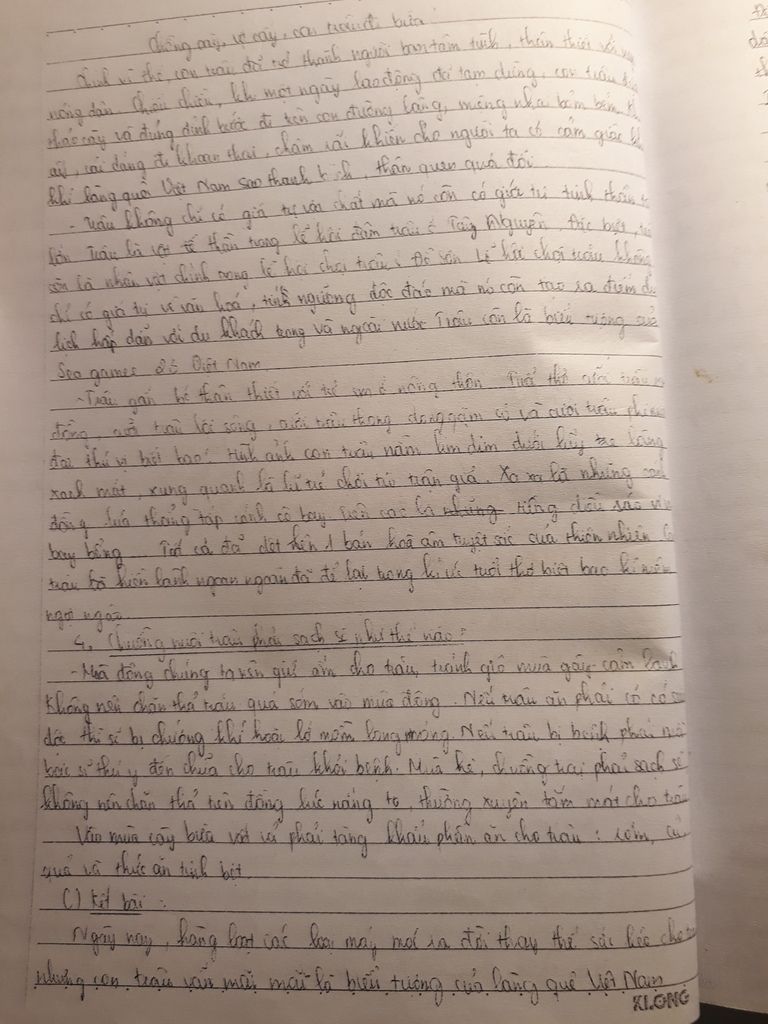 Chồng cày, vợ cấy, con trâu đi bừa
Chính vì thế con trâu đã trở thành người bạn tâm tình, thân thiết với
nông dân. Chiều chiều, khi một ngày lao động đã tạm dừng, con trâu
tháo cày và đủng đỉnh bước đi trên con đường làng, miệng nhai bỏm bẻm
cái dáng đi khoan thai, chậm rãi khiến cho người ta có cảm giác
khí làng quê Việt Nam sao thanh bình, thân quen quá đỗi
- Trâu không chỉ có giá trị vật chất mà nó còn có giá trị tinh thần
lớn Trâu là vật tế thần trong lễ hội đâm trâu ở Tây Nguyên, Đặc biệt,
còn là nhân vật chính trong lễ hội chọi trâu ở Đồ Sơn Lễ hội chọi trâu không
chỉ có giá trị về văn hoá, tính ngưỡng độc đáo mà nó còn tạo ra điểm du
lịch hấp dẫn với du khách trong và ngoài nước Trâu còn là biểu tượng của
Sea games 22 ở Việt Nam.
- Trâu gắn bó thân thiết với trẻ em ở nông thôn. Tuổi thơ cưỡi trâu
đồng, cưỡi trâu lội sông, cưỡi trâu thong dong gặm cỏ và cưỡi trâu
đá thú vị biết bao! Hình ảnh con trâu nằm lim dim dưới lũy tre làng
xanh mát, xung quanh là lũ trẻ chơi trò trận giả. Xa xa là những cánh
đồng lúa thẳng tắp cánh cò bay. Trên cao là tiếng diều sáo vi
bay bổng Tất cả đã dệt nên 1 bản hoà âm tuyệt sắc của thiên nhiên
trâu hiền lành ngoan ngoãn đã để lại trong kí ức tuổi thơ biết bao kỉ niệm
ngọt ngào.
4, Chuồng nuôi trâu phải sạch sẽ như thế nào?
- Mùa đông chúng ta nên giữ ấm cho trâu, tránh gió mùa gây cảm lạnh
Không nên chăn thả trâu quá sớm vào mùa đông. Nếu trâu ăn phải cỏ có
độc thì sẽ bị chướng khí hoặc lở mồm long móng. Nếu trâu bị bệnh phải
bác sĩ thú y đến chữa cho trâu khỏi bệnh. Mùa hè, chuồng trại phải sạch sẽ
không nên chăn thả trên đồng lúc nắng to, thường xuyên tắm mát cho trâu
Vào mùa cày bừa vất vả phải tăng khẩu phần ăn cho trâu: rơm, củ
quả và thức ăn tinh bột
C) Kết bài:
Ngày nay, hàng loạt các loại máy mới ra đời thay thế sức kéo cho
nhưng con trâu vẫn mãi mãi là biểu tượng của làng quê Việt Nam
KLONG